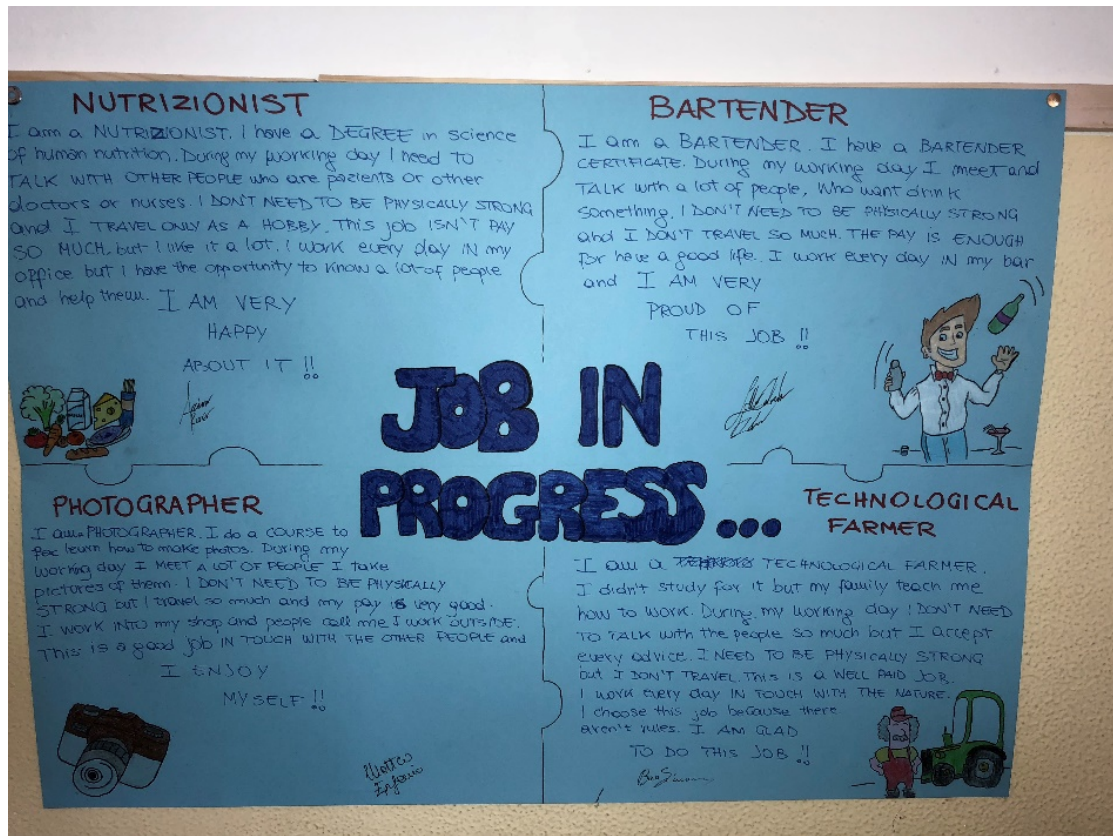 NUTRIZIONIST
I am a NUTRIZIONIST. I have a DEGREE in science
of human nutrition. During my working day I need to
TALK WITH OTHER PEOPLE who are pazients or other
doctors or nurses. I DON'T NEED TO BE PHYSICALLY STRONG
and I TRAVEL ONLY AS A HOBBY. This job ISN'T PAY
SO MUCH, but I like it a lot. I work every day IN my
office but I have the opportunity to know a lot of people
and help them. I AM VERY
HAPPY
ABOUT IT !!
BARTENDER
I am a BARTENDER. I have a BARTENDER
CERTIFICATE. During my working day I meet and
TALK with a lot of people, who want drink
something. I DON'T NEED TO BE PHYSICALLY STRONG
and I DON'T TRAVEL SO MUCH. THE PAY IS ENOUGH
for have a good life. I work every day IN my bar
and I AM VERY
PROUD OF
THIS JOB !!
JOB IN
PROGRESS...
PHOTOGRAPHER
I am PHOTOGRAPHER. I do a COURSE to
learn how to make photos. During my
working day I MEET A LOT OF PEOPLE I take
pictures of them. I DON'T NEED TO BE PHYSICALLY
STRONG but I travel so much and my pay is very good.
I WORK INTO my shop and people call me I work OUTSIDE.
This is a good job IN TOUCH WITH THE OTHER PEOPLE and
I ENJOY
MYSELF !!
Matteo
TECHNOLOGICAL
FARMER
I am a TECHNOLOGICAL FARMER.
I didn't study for it but my family teach me
how to work. During my working day I DON'T NEED
TO TALK with the people so much but I accept
every advice. I NEED TO BE PHYSICALLY STRONG
but I DON'T TRAVEL. THIS IS A WELL PAID JOB.
I work every day IN TOUCH WITH THE NATURE.
I choose this job because there
aren't rules. I AM GLAD
TO DO THIS JOB !!